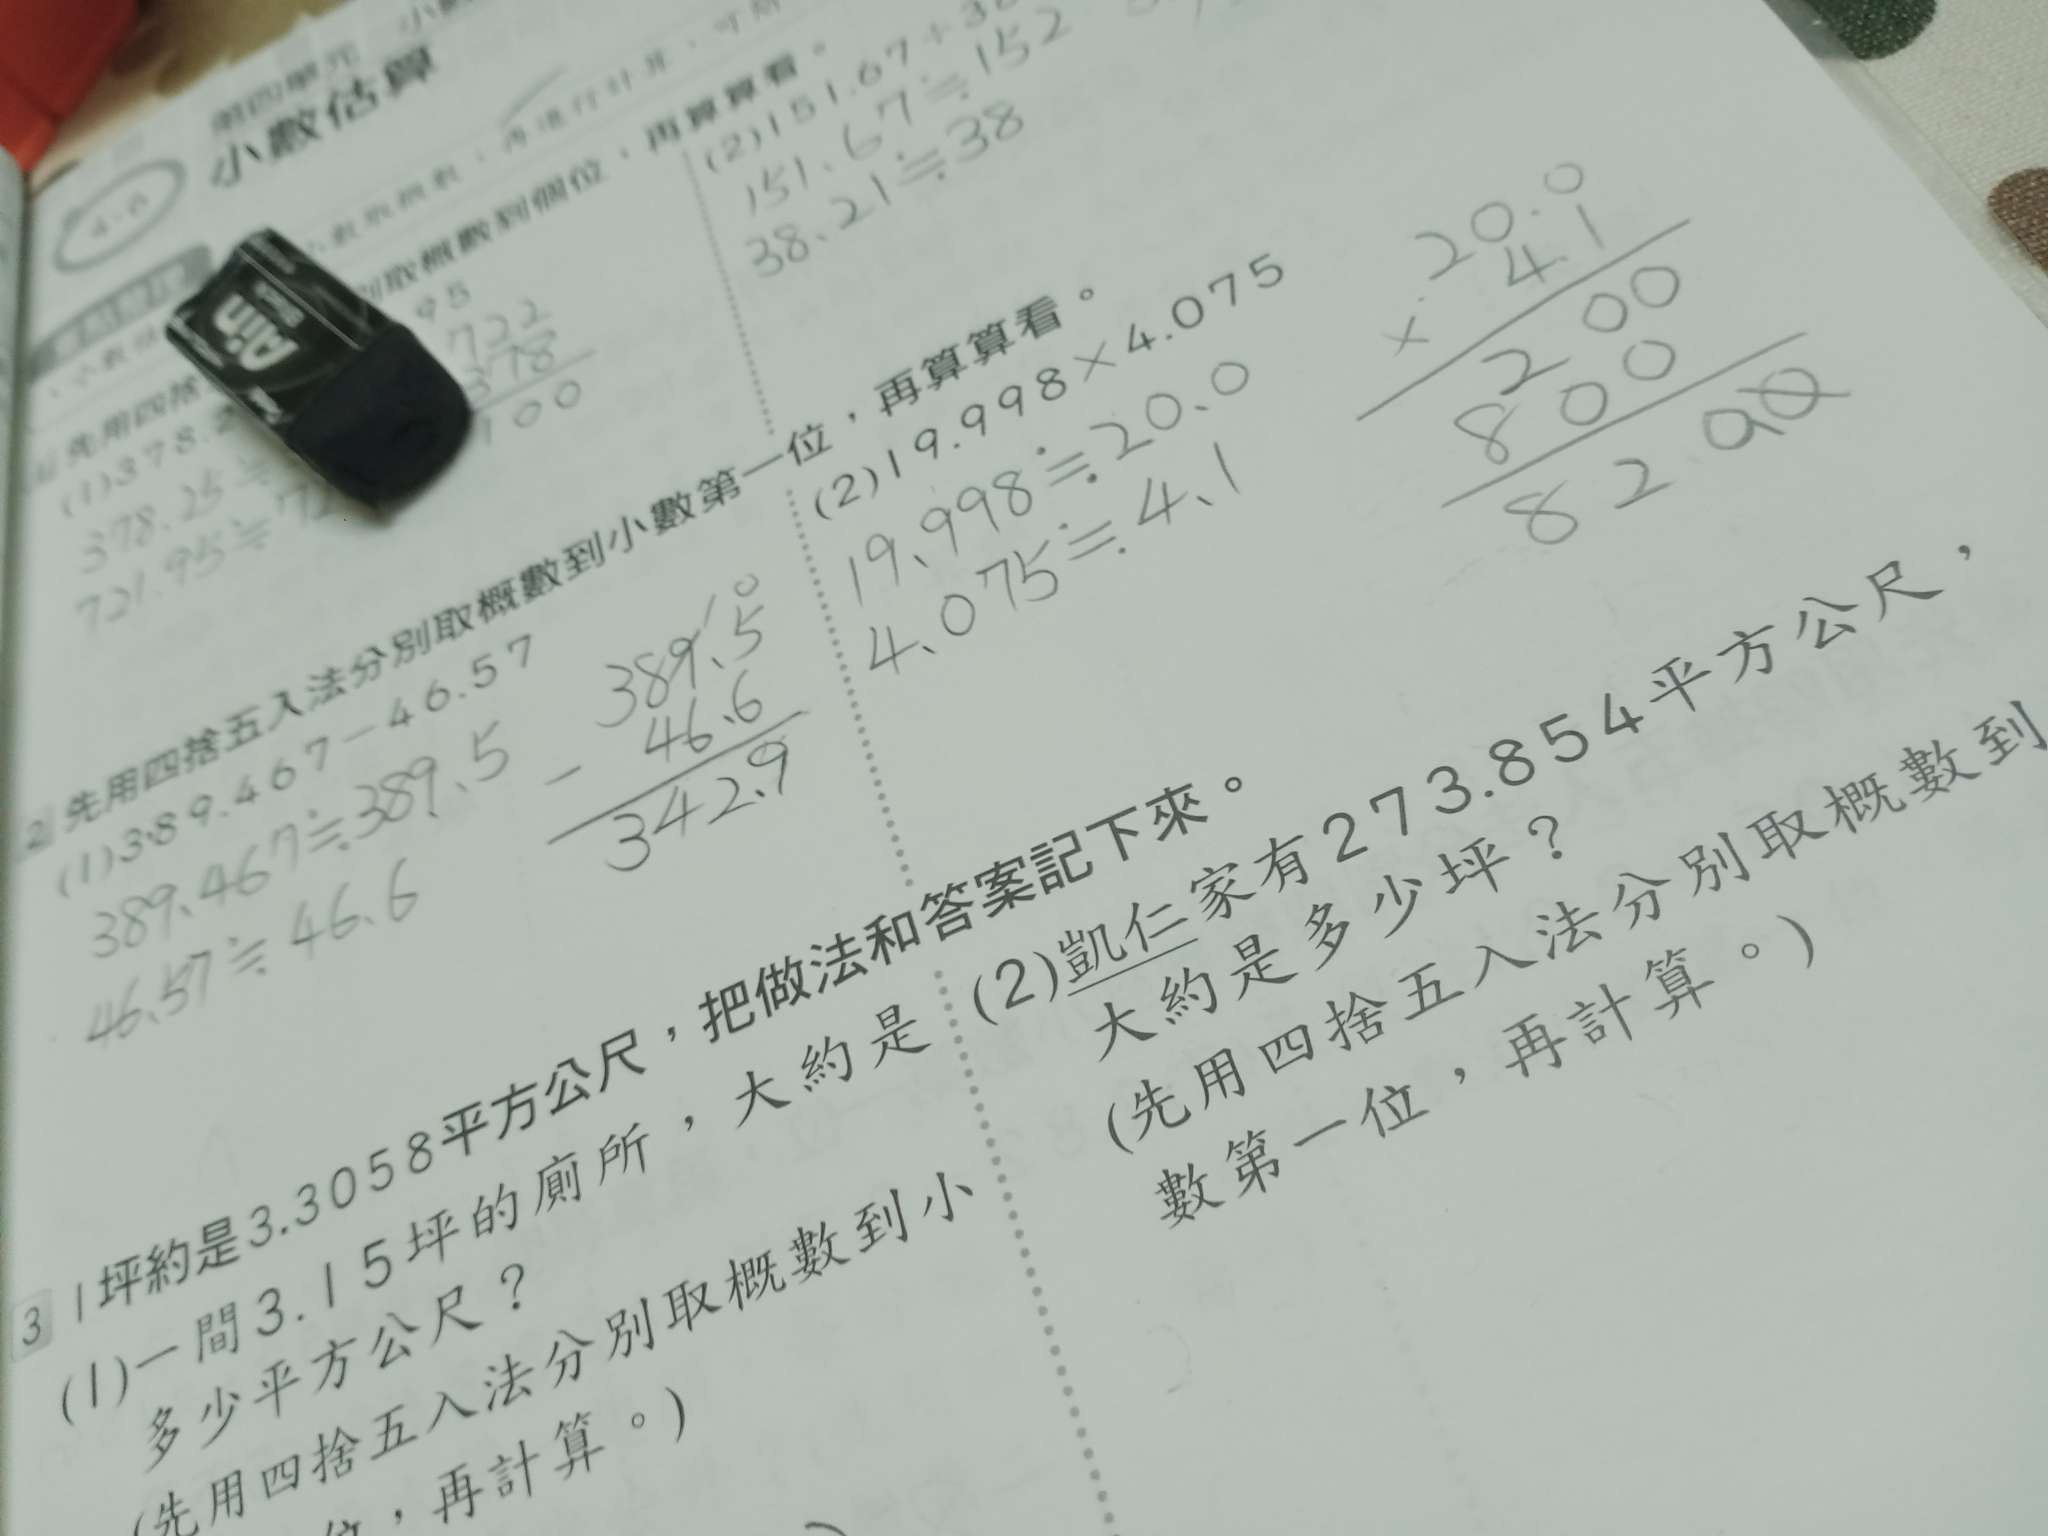 第四單元
小數估算
再算算看。
(2)151.67÷38
151.67≒152
38.21≒38
別取概數到個位，
95
722
378
00
先用四捨
(1)378.2
378.25≒
721.95≒72
2 先用四捨五入法分別取概數到小數第一位，再算算看。
(1)389.467－46.57
389.467≒389.5
46.57≒46.6
10
389.5
－ 46.6
342.9
(2)19.998×4.075
19.998≒20.0
4.075≒4.1
20.0
× 4.1
200
800
82.00
3 1坪約是3.3058平方公尺，把做法和答案記下來。
(1)一間3.15坪的廁所，大約是
多少平方公尺？
(先用四捨五入法分別取概數到小
位，再計算。)
(2)凱仁家有273.854平方公尺，
大約是多少坪？
(先用四捨五入法分別取概數到
數第一位，再計算。)